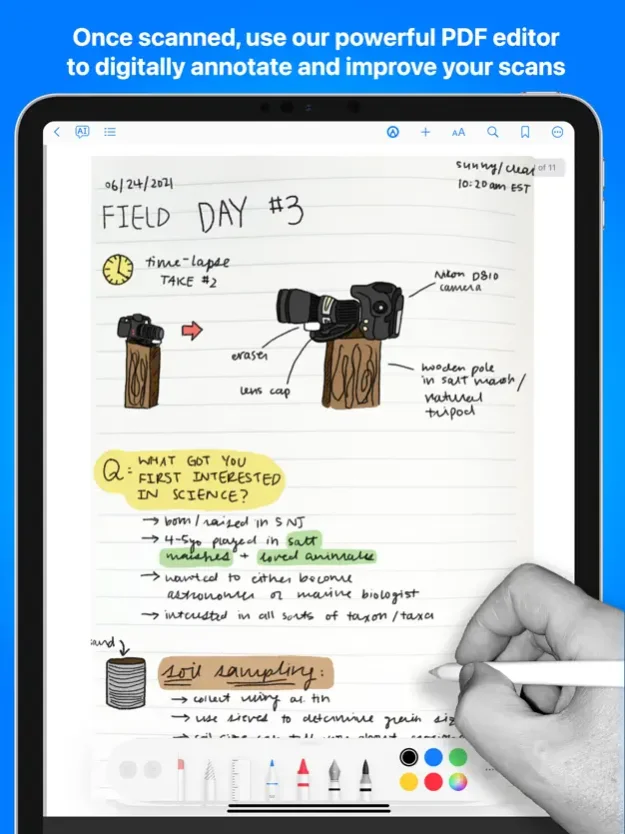 Once scanned, use our powerful PDF editor
to digitally annotate and improve your scans
AI
AA
of 11
sunny/clear
10:20am EST
06/24/2021
FIELD DAY #3
time-lapse
TAKE #2
Nikon D810
camera
eraser
lens cap
wooden pole
in salt marsh/
natural
tripod
Q: WHAT GOT YOU
FIRST INTERESTED
IN SCIENCE?
→ born/raised in SNJ
→ 4-5yo played in salt
marshes + loved animals
→ wanted to either become
astronomer or marine biologist
→ interested in all sorts of taxon/taxa
sand
soil sampling:
→ collect using a tin
→ use sieves to determine grain siz